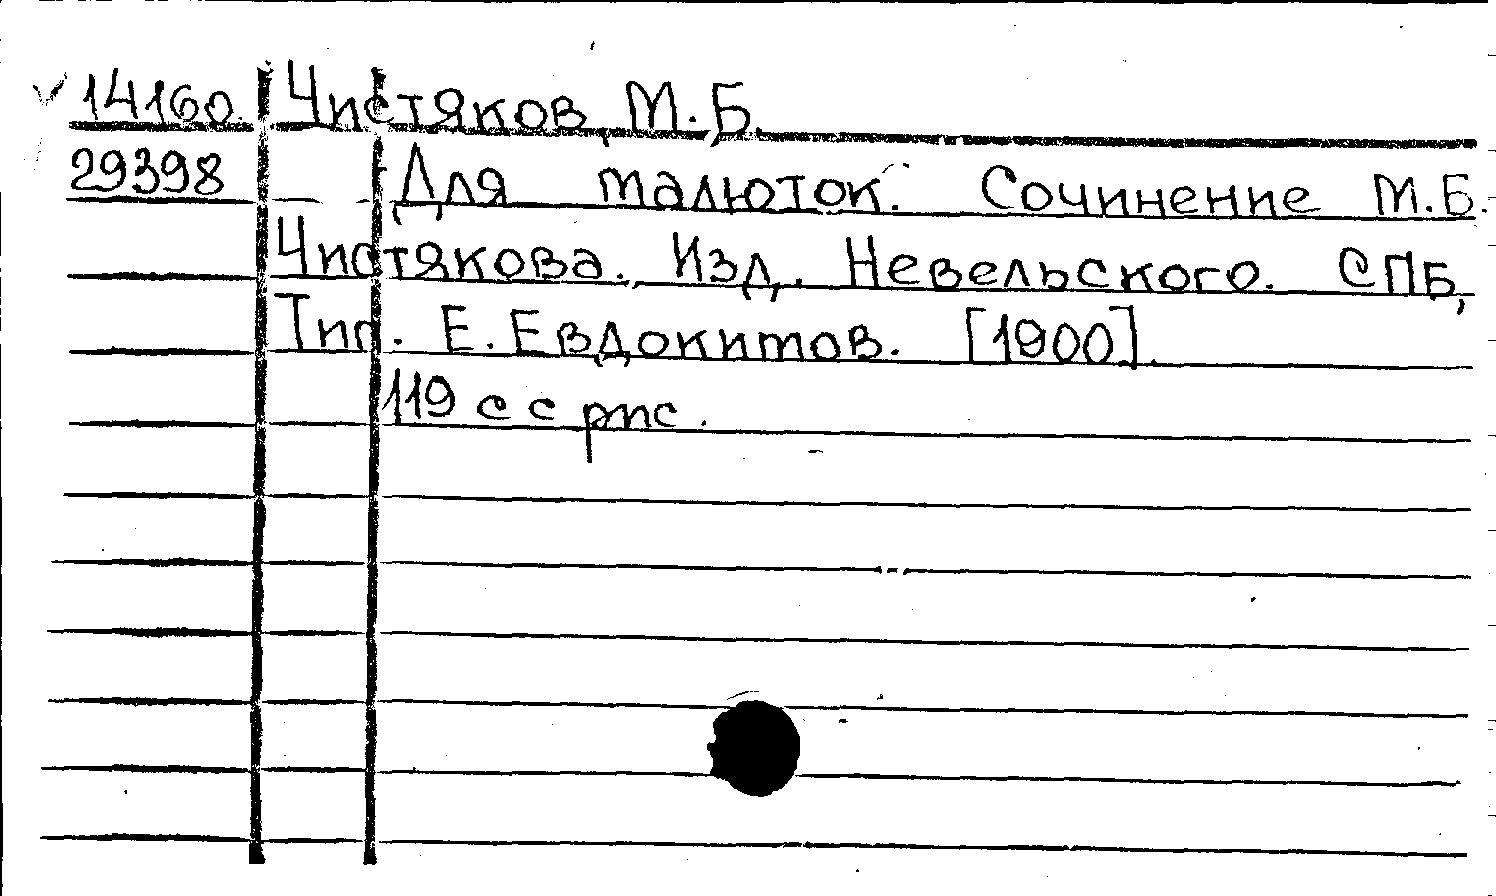 14160. Чистяков, М.Б.
29398 Для малюток. Сочинение М.Б.
Чистякова. Изд. Невельского. СПБ,
Тип. Е. Евдокимов. [1900].
119 с с рис.